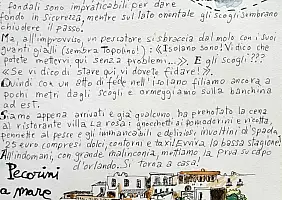 fondali sono impraticabili per dare
fondo in sicurezza, mentre sul lato orientale gli scogli sembrano
chiudere il passo.
Ma, all'improvviso, un pescatore si sbraccia dal molo con i suoi
guanti gialli (sembra Topolino!): «Isolano sono! Vi dico che
potete mettervi qui senza problemi...». E gli scogli???
«Se vi dico di stare qui vi dovete fidare!».
Quindi con un atto di fede nell'isolano filiamo ancora a
pochi metri dagli scogli e ormeggiamo sulla banchina
ad est.
Siamo appena arrivati e già qualcuno ha prenotato la cena
al ristorante villa La rosa: gnocchetti ai pomodorini e ricotta,
al pesce e gli immancabili e deliziosi involtini di spada,
25 euro compresi dolci, contorni e taxi! Evviva la bassa stagione!
All'indomani, con grande malinconia, mettiamo la prua su capo
d'orlando. Si torna a casa!
Pecorini
a mare